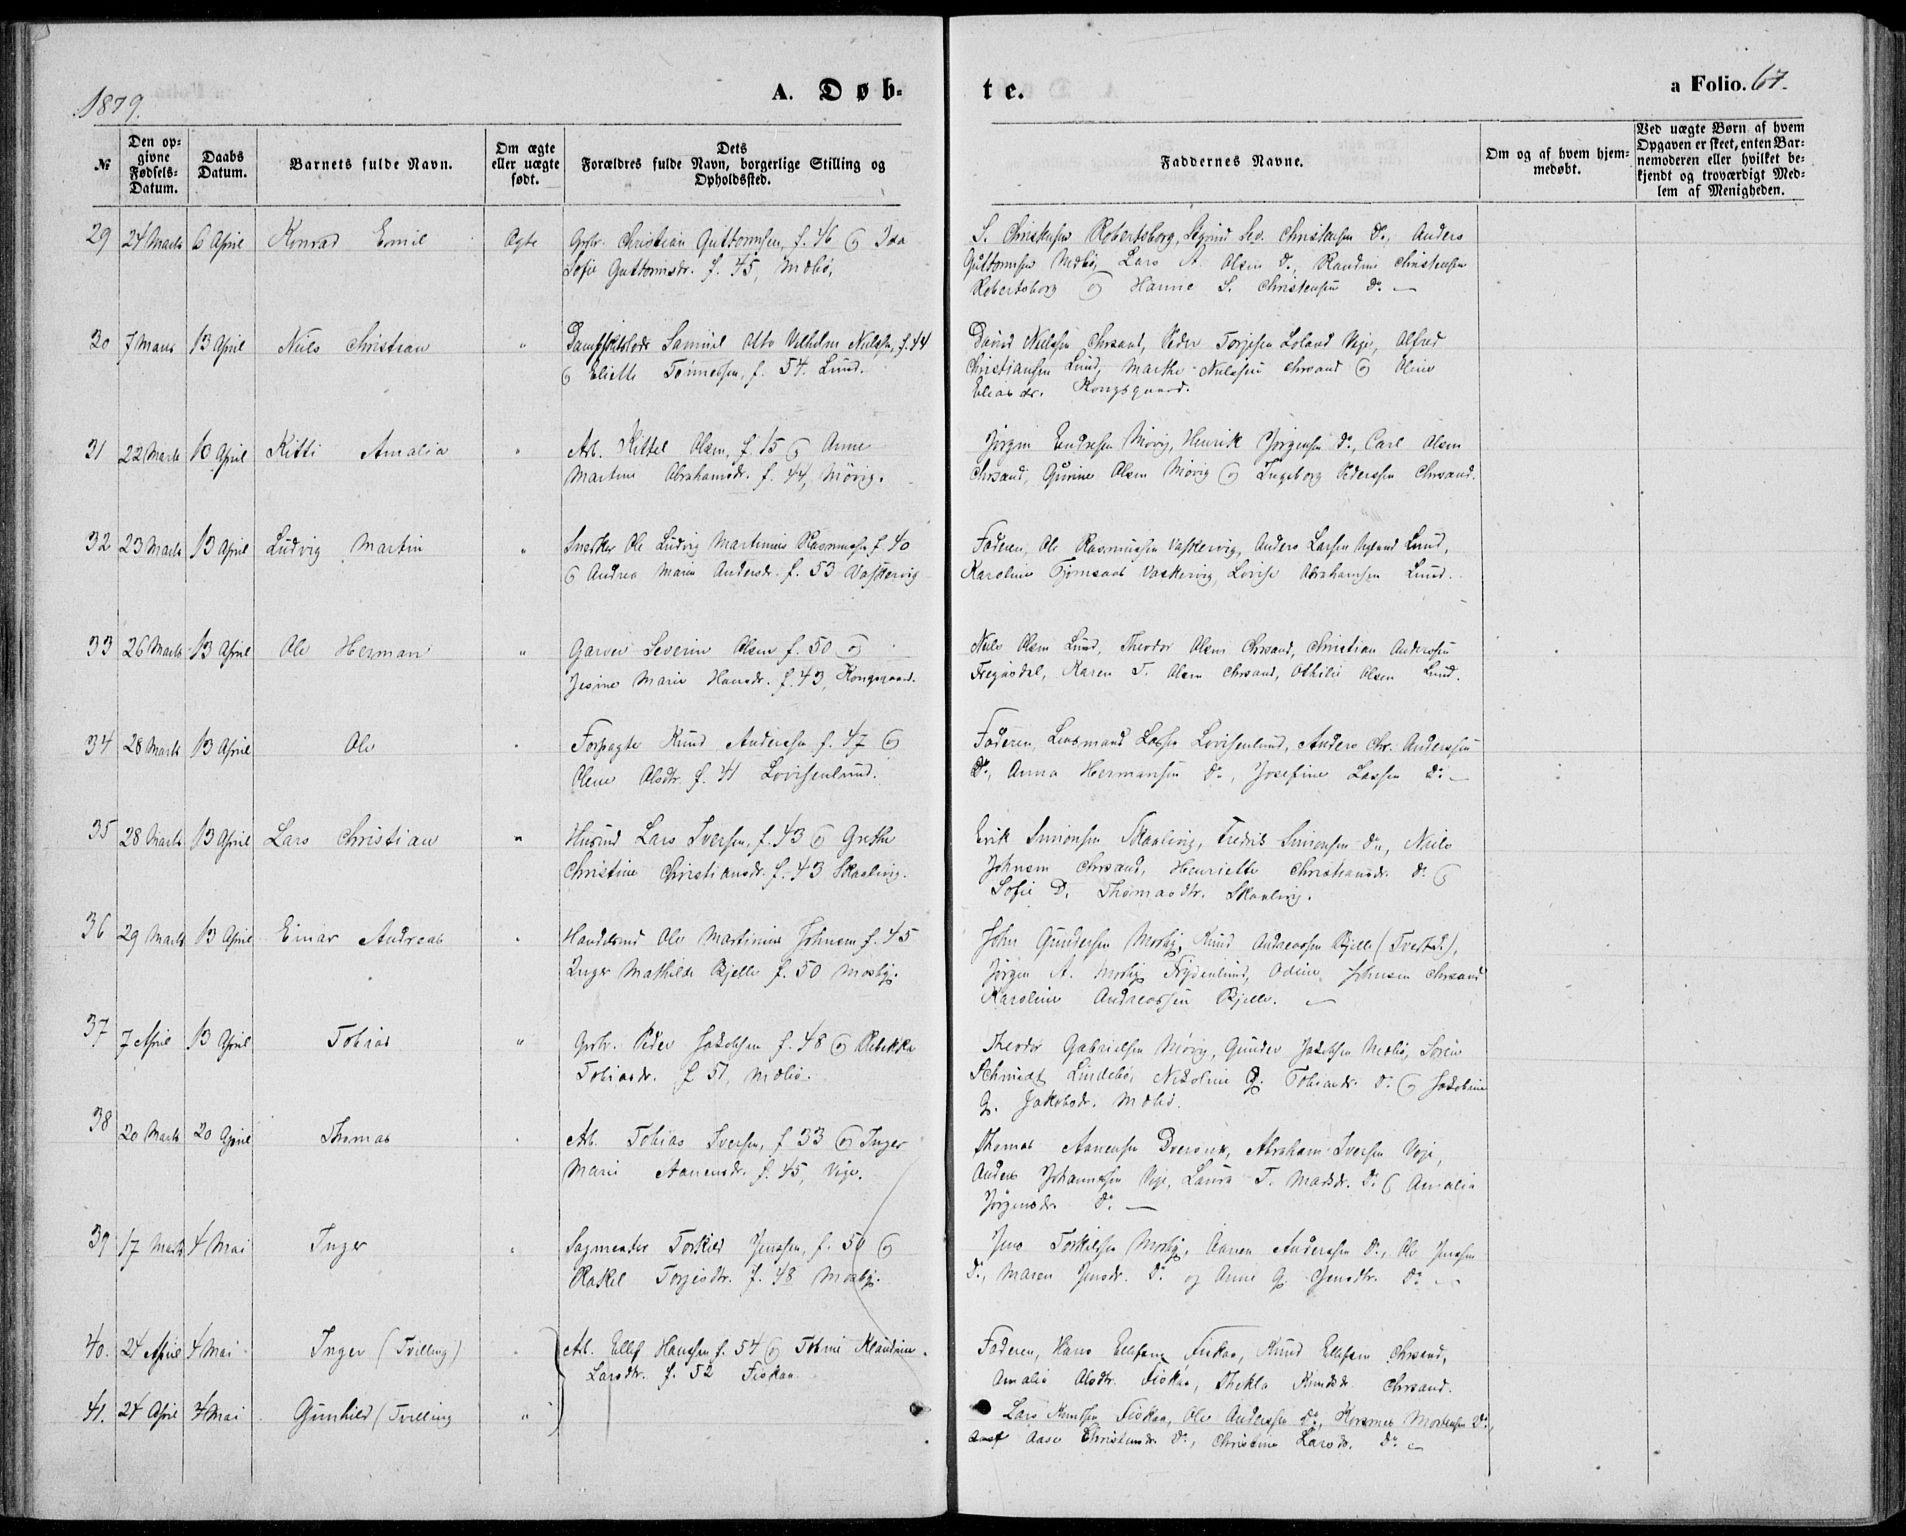 1879.
A. Døb-
te.
a Folio. 67.
№
Den op-
givne
Fødsels-
Datum.
Daabs
Datum.
Barnets fulde Navn.
Om ægte
eller uægte
født.
Dets
Forældres fulde Navn, borgerlige Stilling og
Opholdssted.
Faddernes Navne.
Om og af hvem hjem-
medøbt.
Ved uægte Børn af hvem
Opgaven er skeet, enten Bar-
nemoderen eller hvilket be-
kjendt og troværdigt Med-
lem af Menigheden.
29 24 Marts 6 April Konrad Emil Ægte Christian Guttormsen, f. 46 &
Sofie Guttormsdr. f. 45,
S. Christensen Robertsborg, Christensen Do, Anders
Guttormsen Lars A. Olsen Do, Randine Christensen
Robertsborg & Hanne S. Christensen Do —
30 7 Marts 13 April Nils Christian " Samuel Otto Vilhelm Nielsen, f. 44
& Eliette Tønnesen, f. 54. Lund.
David Nielsen Chrsand, Peder Torjesen Loland Vige, Alfred
Christiansen Lund, Marthe Nielsen Chrsand & Oline
Eliasdr. Kongsgaard.
31 22 Marts 10 April Kitti Amalia " Arb. Kittel Olsen, f. 15 & Anne
Martine Abrahamsdr. f. 44, Møvig.
Jørgen Endresen Møvig, Henrik Jørgensen Do, Carl Olsen
Chrsand, Gurine Olsen Møvig & Ingeborg Pedersen Chrsand.
32 23 Marts 13 April Ludvig Martin " Snedker Ole Ludvig Martinius Rasmussen f. 40
& Andrea Marie Andersdr. f. 53 Vaskervig
Faderen, Ole Rasmussen Vaskervig, Anders Larsen Lund,
Karoline Tjomsaas Vaskervig, Lovise Abrahamsen Lund.
33 26 Marts 13 April Ole Herman " Garver Severin Olsen f. 50 &
Jesine Marie Hansdr. f. 43, Kongsgaard.
Nils Olsen Lund, Theodor Olsen Chrsand, Christian Andersen
Karen T. Olsen Chrsand, Othilie Olsen Lund.
34 28 Marts 13 April Ole " Forpagter Knud Andersen f. 47 &
Olene Olsdtr. f. 41 Lovisenlund.
Faderen, Lensmand Lassen Lovisenlund, Anders Chr. Anderssen
Do, Anna Hermansen Do, Josefine Lassen Do —
35 28 Marts 13 April Lars Christian " Husmd Lars Iversen, f. 43 & Grethe
Christine Christiansdr. f. 43 Skaalevig.
Erik Simonsen Skaalevig, Fredrik Simonsen Do, Niels
Johnsen Chrsand, Henriette Christiansdr. Do &
Sofie D. Thomasdtr. Skaalevig.
36 29 Marts 13 April Einar Andreas " Handelsmd Ole Martinius Johnsen f. 45
Inger Mathilde Bjelle f. 50 Mosby.
John Gundersen Mosby, Knud Andreassen Bjelle (Tveit),
Jørgen A. Mosby Frydenlund, Odine Johnsen Chrsand
Karoline Andreassen Bjelle. —
37 7 April 13 April Tobias " Peder Jakobsen f. 48 & Rebekka
Tobiasdr. f. 51,
Theodor Gabrielsen Møvig, Gunder Jakobsen Søren
Schmidt Lindebø, Nikoline G. Tobiasdr. Do & Jakobine
G. Jakobsdr.
38 20 Marts 20 April Thomas " Arb. Tobias Iversen, f. 33 & Inger
Marie Aanensdr. f. 45, Vige.
Thomas Aanensen Abraham Iversen Vige,
Anders Johannessen Vige, Laura T. Madsdr. Do & Amalie
Jørgensdr. Do —
39 17 Marts 4 Mai Inger " Sagmester Torkild Jenssen, f. 50 &
Rakel Torjesdtr. f. 48 Mosby.
Jens Torkilsen Mosby, Aanen Anderssen Do, Ole Jenssen
Do, Maren Jensdr. Do og Anne G. Jensdtr. Do —
40. 24 April 4 Mai Inger (Tvilling) " Arb. Ellef Hanssen f. 54 & Tobine Klaudine
Larsdtr. f. 52 Fiskaa.
Faderen, Hans Ellefsen Fiskaa, Knud Ellefsen Chrsand,
Amalie Olsdtr. Fiskaa, Thekla Knudsdr. Chrsand.
41. 24 April 4 Mai Gunhild (Tvilling "
Lars Knudsen Fiskaa, Ole Anderssen Do, Mortensen Do,
Aase Christensdr. Do, Christine Larsdr. Do —